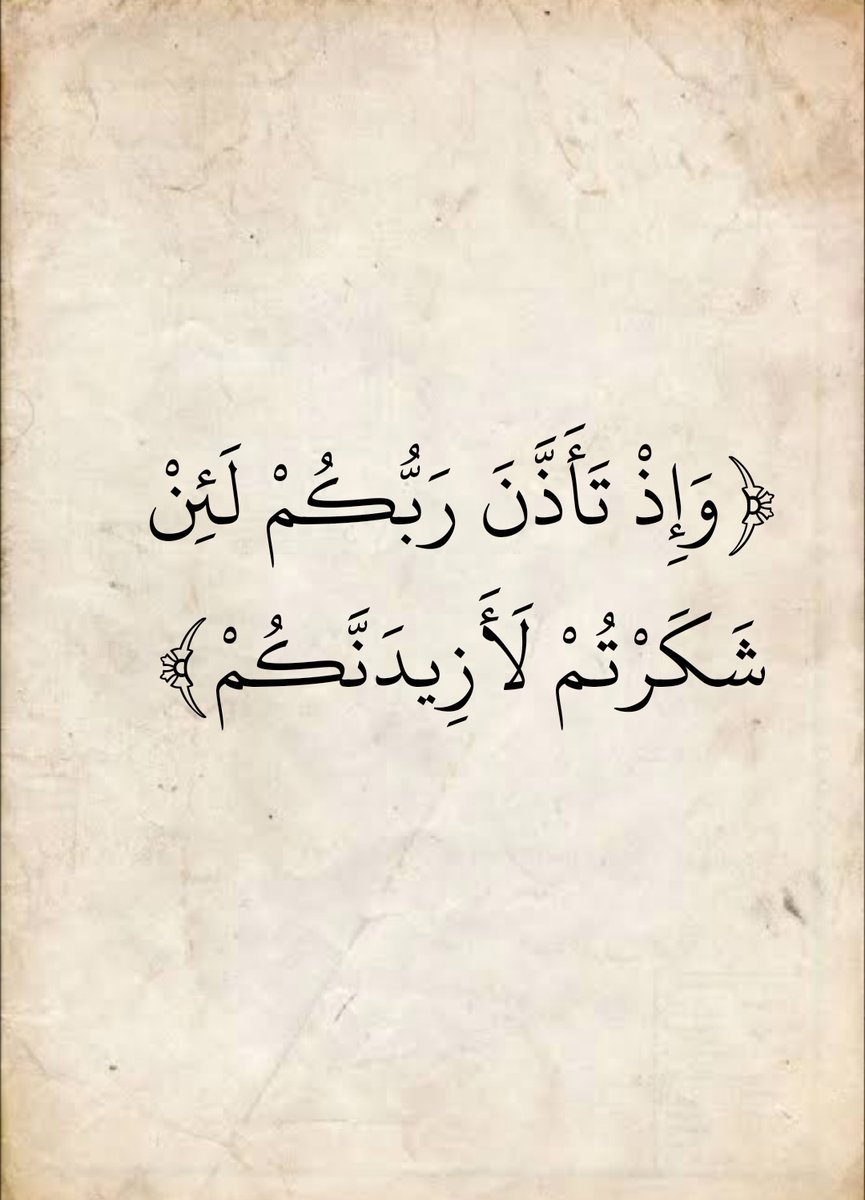 ﴿وَإِذْ تَأَذَّنَ رَبُّكُمْ لَئِنْ
شَكَرْتُمْ لَأَزِيدَنَّكُمْ﴾